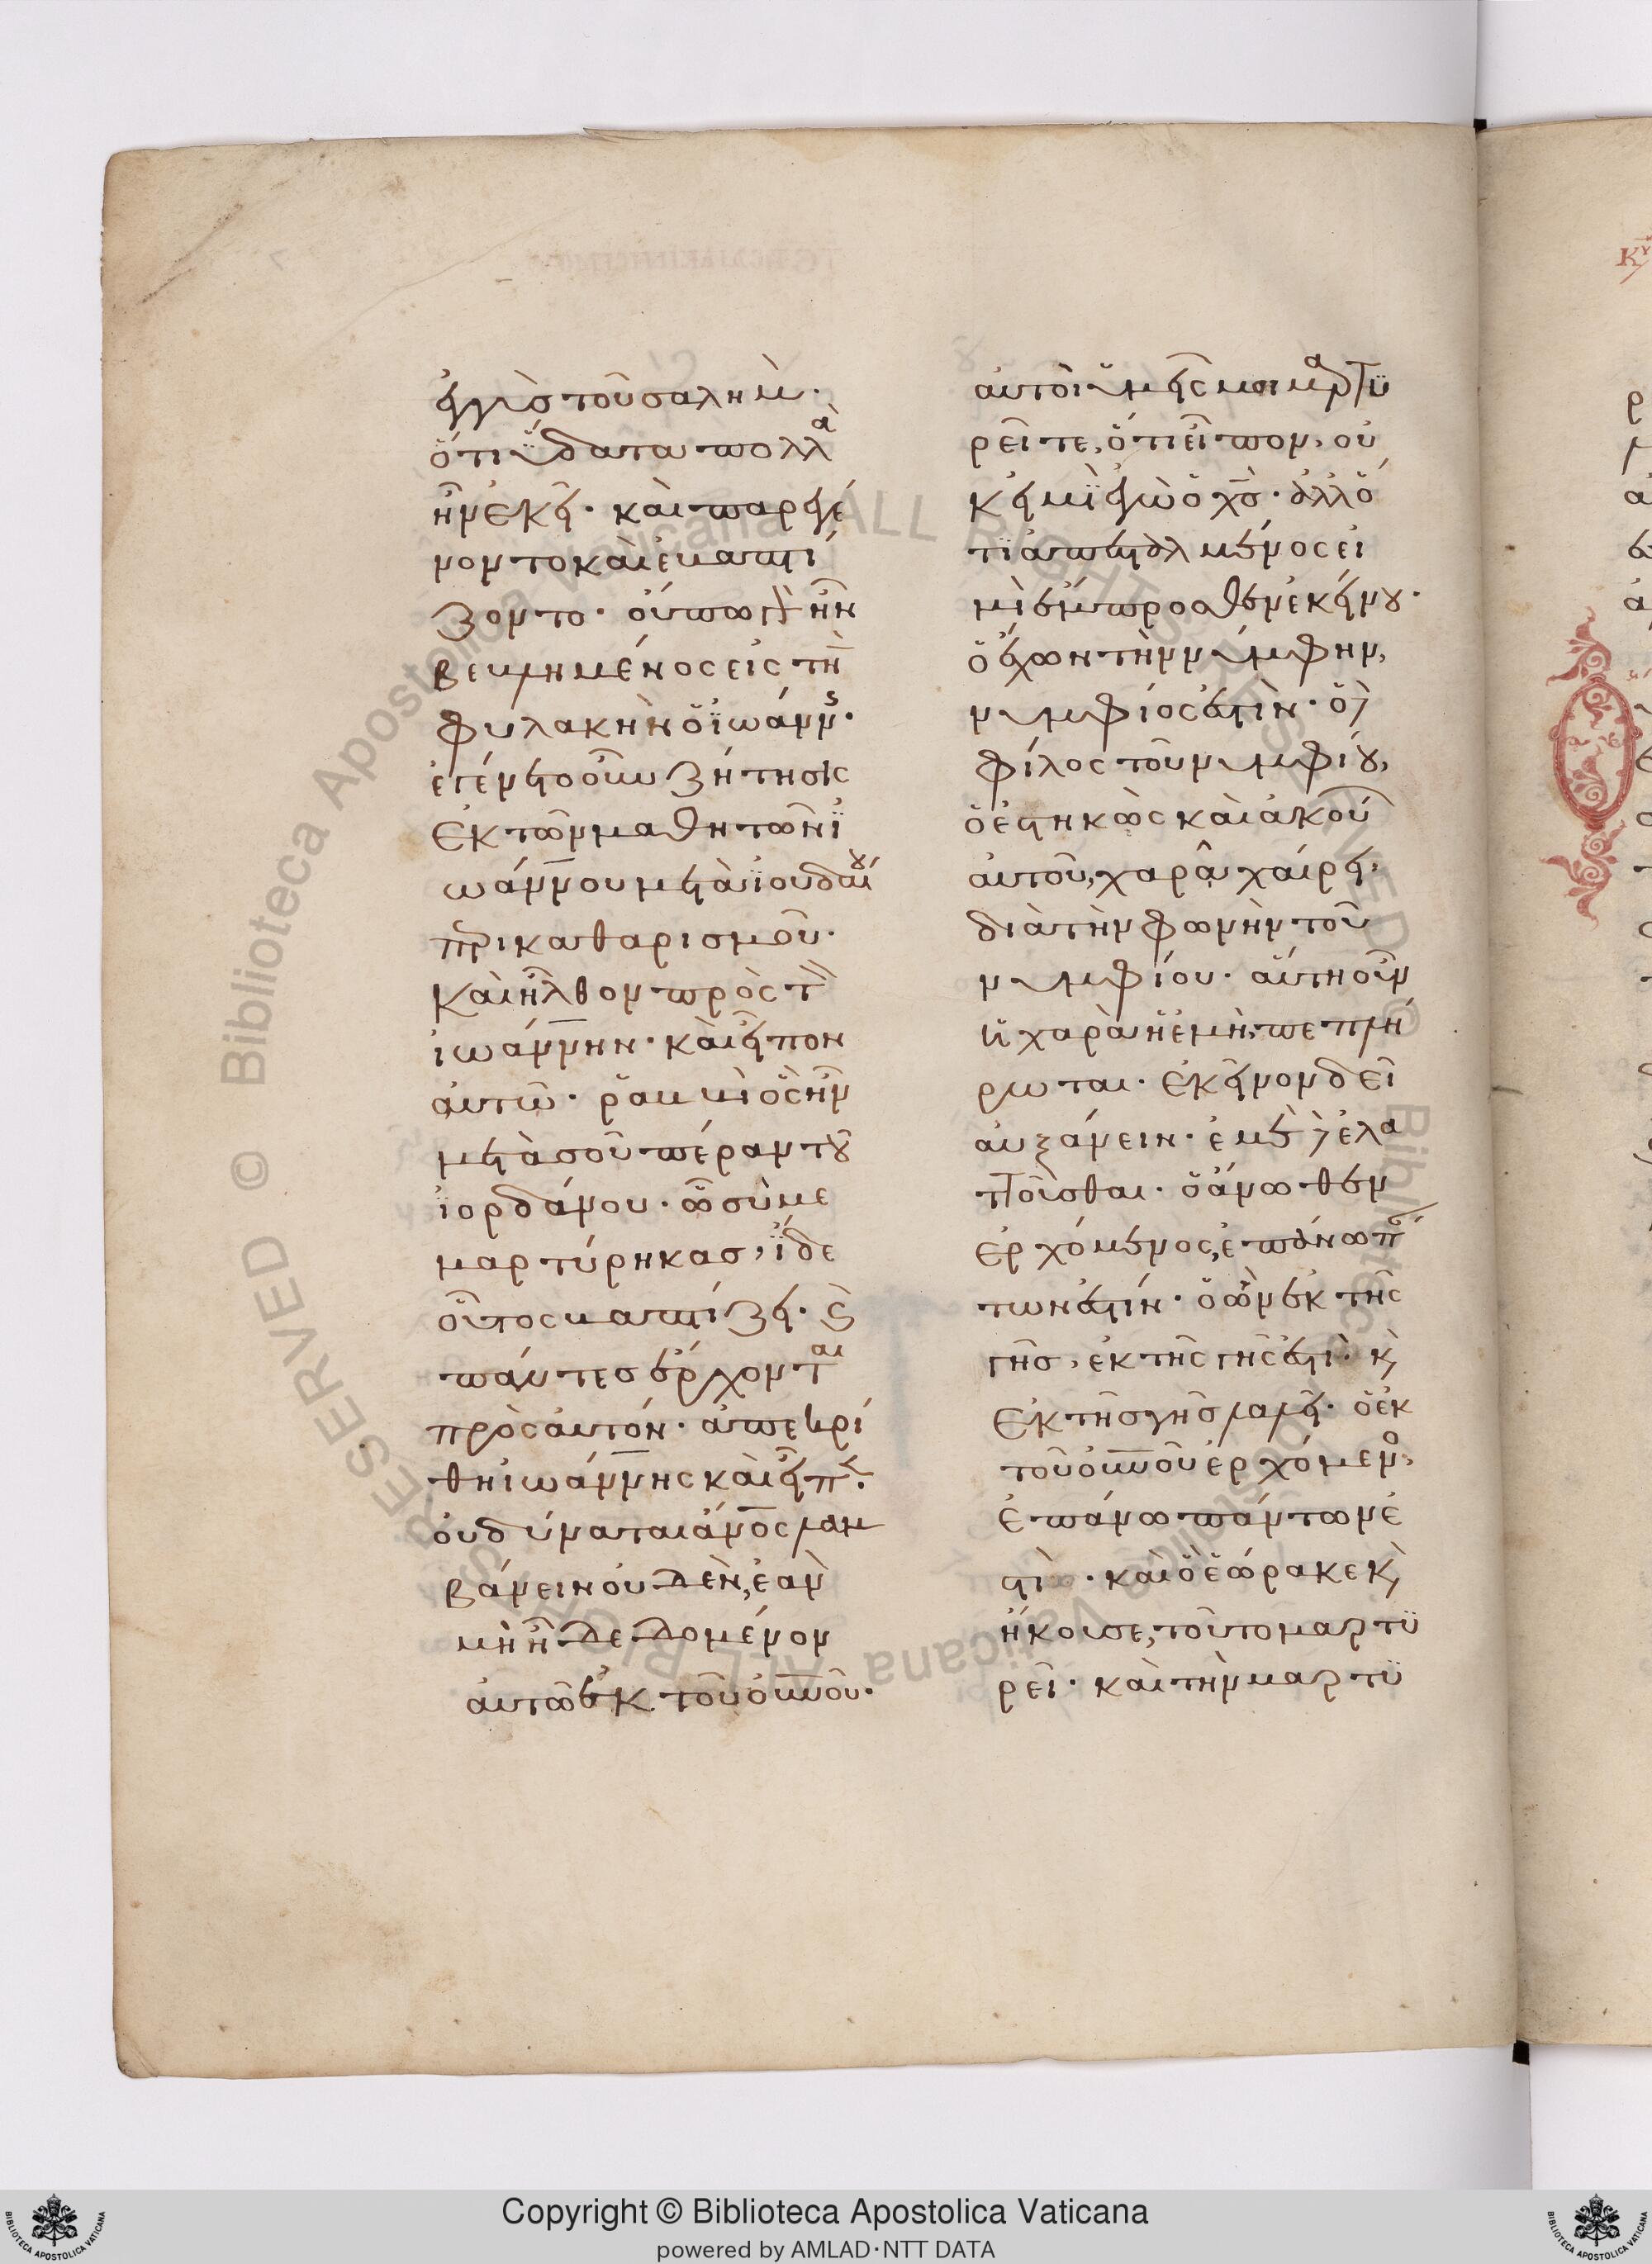 ἐγγὺς τοῦ σαλημ·
ὅτι ὕδατα πολλὰ
ἦν ἐκεῖ· καὶ παρεγέ
νοντο καὶ ἐβαπτί
ζοντο· οὔπω γὰρ ἦν
βεβλημένος εἰς τὴν
φυλακὴν ὁ ἰωάννης·
ἐγένετο οὖν ζήτησις
ἐκ τῶν μαθητῶν ἰ
ωάννου μετὰ ἰουδαίου
περὶ καθαρισμοῦ·
καὶ ἦλθον πρὸς τὸν
ἰωάννην· καὶ εἶπον
αὐτῶ· ῥαββὶ ὃς ἦν
μετὰ σοῦ πέραν τοῦ
ἰορδάνου· ὧ σὺ με
μαρτύρηκας, ἴδε
οὗτος βαπτίζει· καὶ
πάντες ἔρχονται
πρὸς αὐτόν· ἀπεκρί
θη ἰωάννης καὶ εἶπεν·
οὐ δύναται ἄνος λαμ
βάνειν οὐδὲν, ἐὰν
μὴ ἦ δεδομένον
αὐτῶ ἐκ τοῦ οὐνοῦ·
αὐτοὶ ὑμεῖς μοι μαρτυ
ρεῖτε, ὅτι εἶπον, οὐ
κ εἰμὶ ἐγὼ ὁ χς· ἀλλ' ὅ
τι ἀπεσταλμένος εἰ
μὶ ἔμπροσθεν ἐκείνου·
ὁ ἔχων τὴν νύμφην,
νυμφίος ἐστὶν· ὁ δὲ
φίλος τοῦ νυμφίου,
ὁ ἑστηκὼς καὶ ἀκούων
αὐτοῦ, χαρᾶ χαίρει,
διὰ τὴν φωνὴν τοῦ
νυμφίου· αὕτη οὖν
ἡ χαρὰ ἡ ἐμὴ, πεπλή
ρωται· ἐκεῖνον δεῖ
αὐξάνειν· ἐμὲ δὲ ἐλα
ττοῦσθαι· ὁ ἄνωθεν
ἐρχόμενος, ἐπάνω πάν
των ἐστίν· ὁ ὢν ἐκ τῆς
γῆς, ἐκ τῆς γῆς ἐστι· καὶ
ἐκ τῆς γῆς λαλεῖ· ὁ ἐκ
τοῦ οὐνοῦ ἐρχόμενος,
ἐπάνω πάντων ἐ
στὶ· καὶ ὃ ἑώρακε καὶ
ἤκουσε, τοῦτο μαρτυ
ρεῖ· καὶ τὴν μαρτυ
Copyright © Biblioteca Apostolica Vaticana
powered by AMLAD·NTT DATA